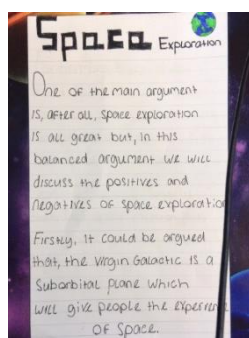 Space
Exploration
One of the main argument
is, after all, space exploration
is all great but, in this
balanced argument we will
discuss the positives and
negatives of space exploration
Firstly, it could be argued
that, the Virgin Galactic is a
Suborbital plane which
will give people the experience
of Space.